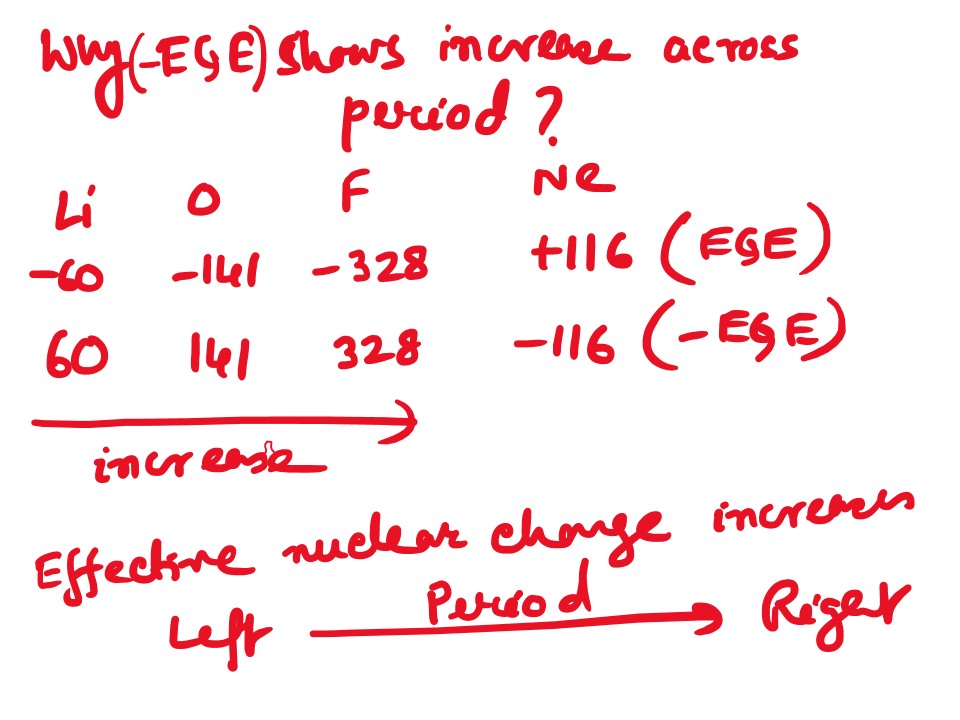 Why (-EGE) shows increase across
period ?
Li O F Ne
-60 -141 -328 +116 (EGE)
60 141 328 -116 (-EGE)
increase
Effective nuclear change increases
Left Period Right